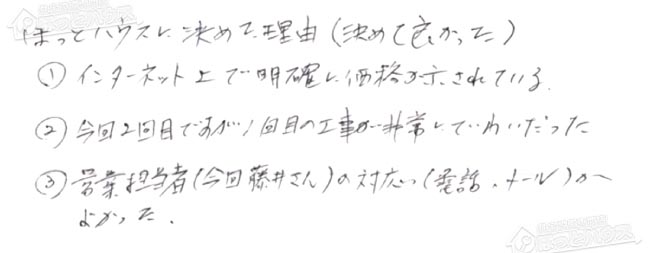 ほっとハウスに決めた理由(決めて良かった)
①インターネット上で明確に価格が示されている.
②今回2回目ですが1回目の工事が非常にていねいだった
③営業担当者(今回藤井さん)の対応(電話、メール)が
よかった.